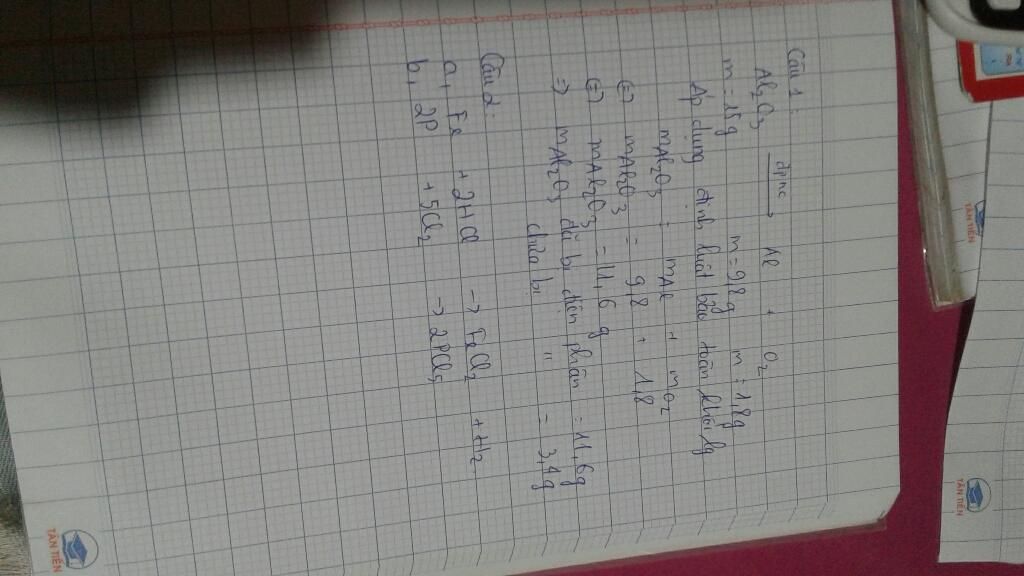 Câu 1:
Al₂O₃ đpnc → Al + O₂
m = 15g m = 9,8g m = 1,8g
Áp dụng định luật bảo toàn khối lg
mAl₂O₃ = mAl + mO₂
(=) mAl₂O₃ = 9,8 + 1,8
(=) mAl₂O₃ = 11,6 g
=) mAl₂O₃ đã bị điện phân = 11,6g
chưa bị " = 3,4g
Câu 2:
a, Fe + 2HCl -> FeCl₂ + H₂
b, 2P + 5Cl₂ -> 2PCl₅
TÂN TIẾN
TÂN TIẾN
TÂN TIẾN